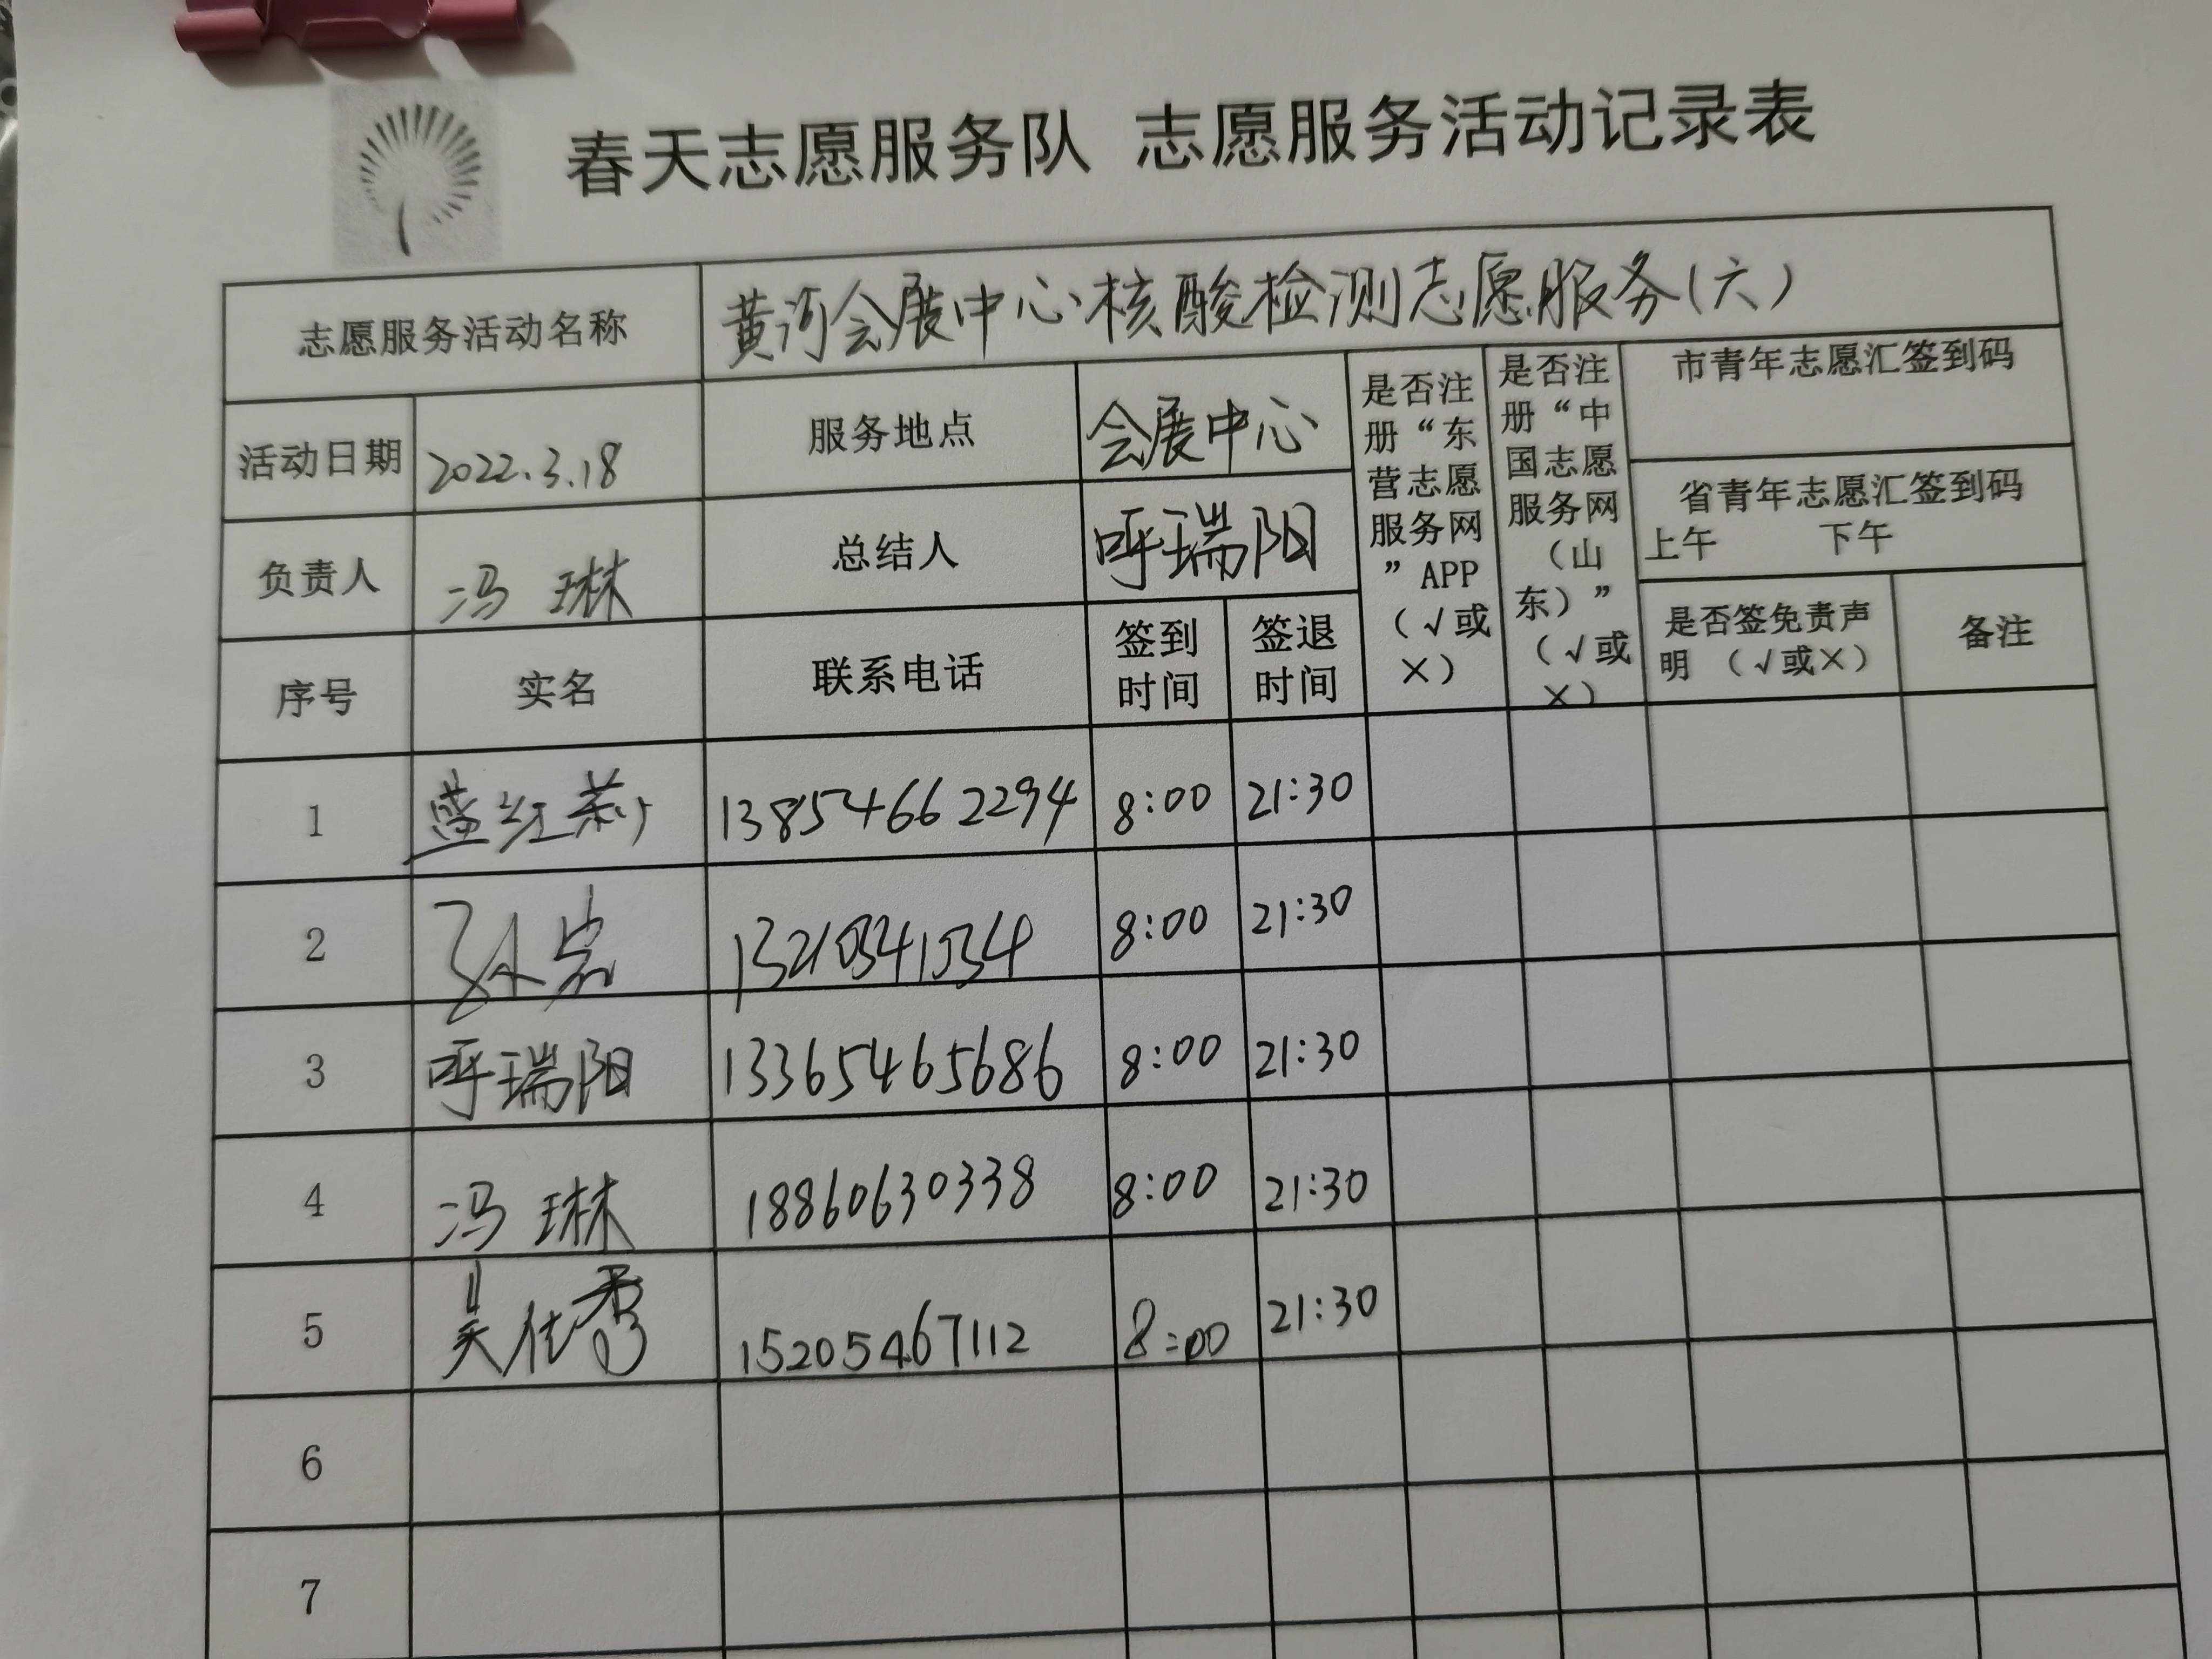 春天志愿服务队 志愿服务活动记录表
志愿服务活动名称 黄河会展中心核酸检测志愿服务(六)
活动日期 2022.3.18 服务地点 会展中心
是否注册“东营志愿服务网”APP（√或×）
是否注册“中国志愿服务网（山东）”（√或×）
市青年志愿汇签到码
省青年志愿汇签到码
上午 下午
负责人 冯琳 总结人 呼瑞阳
序号 实名 联系电话 签到时间 签退时间 是否签免责声明 （√或×） 备注
1 13854662294 8:00 21:30
2 13210341534 8:00 21:30
3 呼瑞阳 13365465686 8:00 21:30
4 冯琳 18860630338 8:00 21:30
5 15205467112 8:00 21:30
6
7